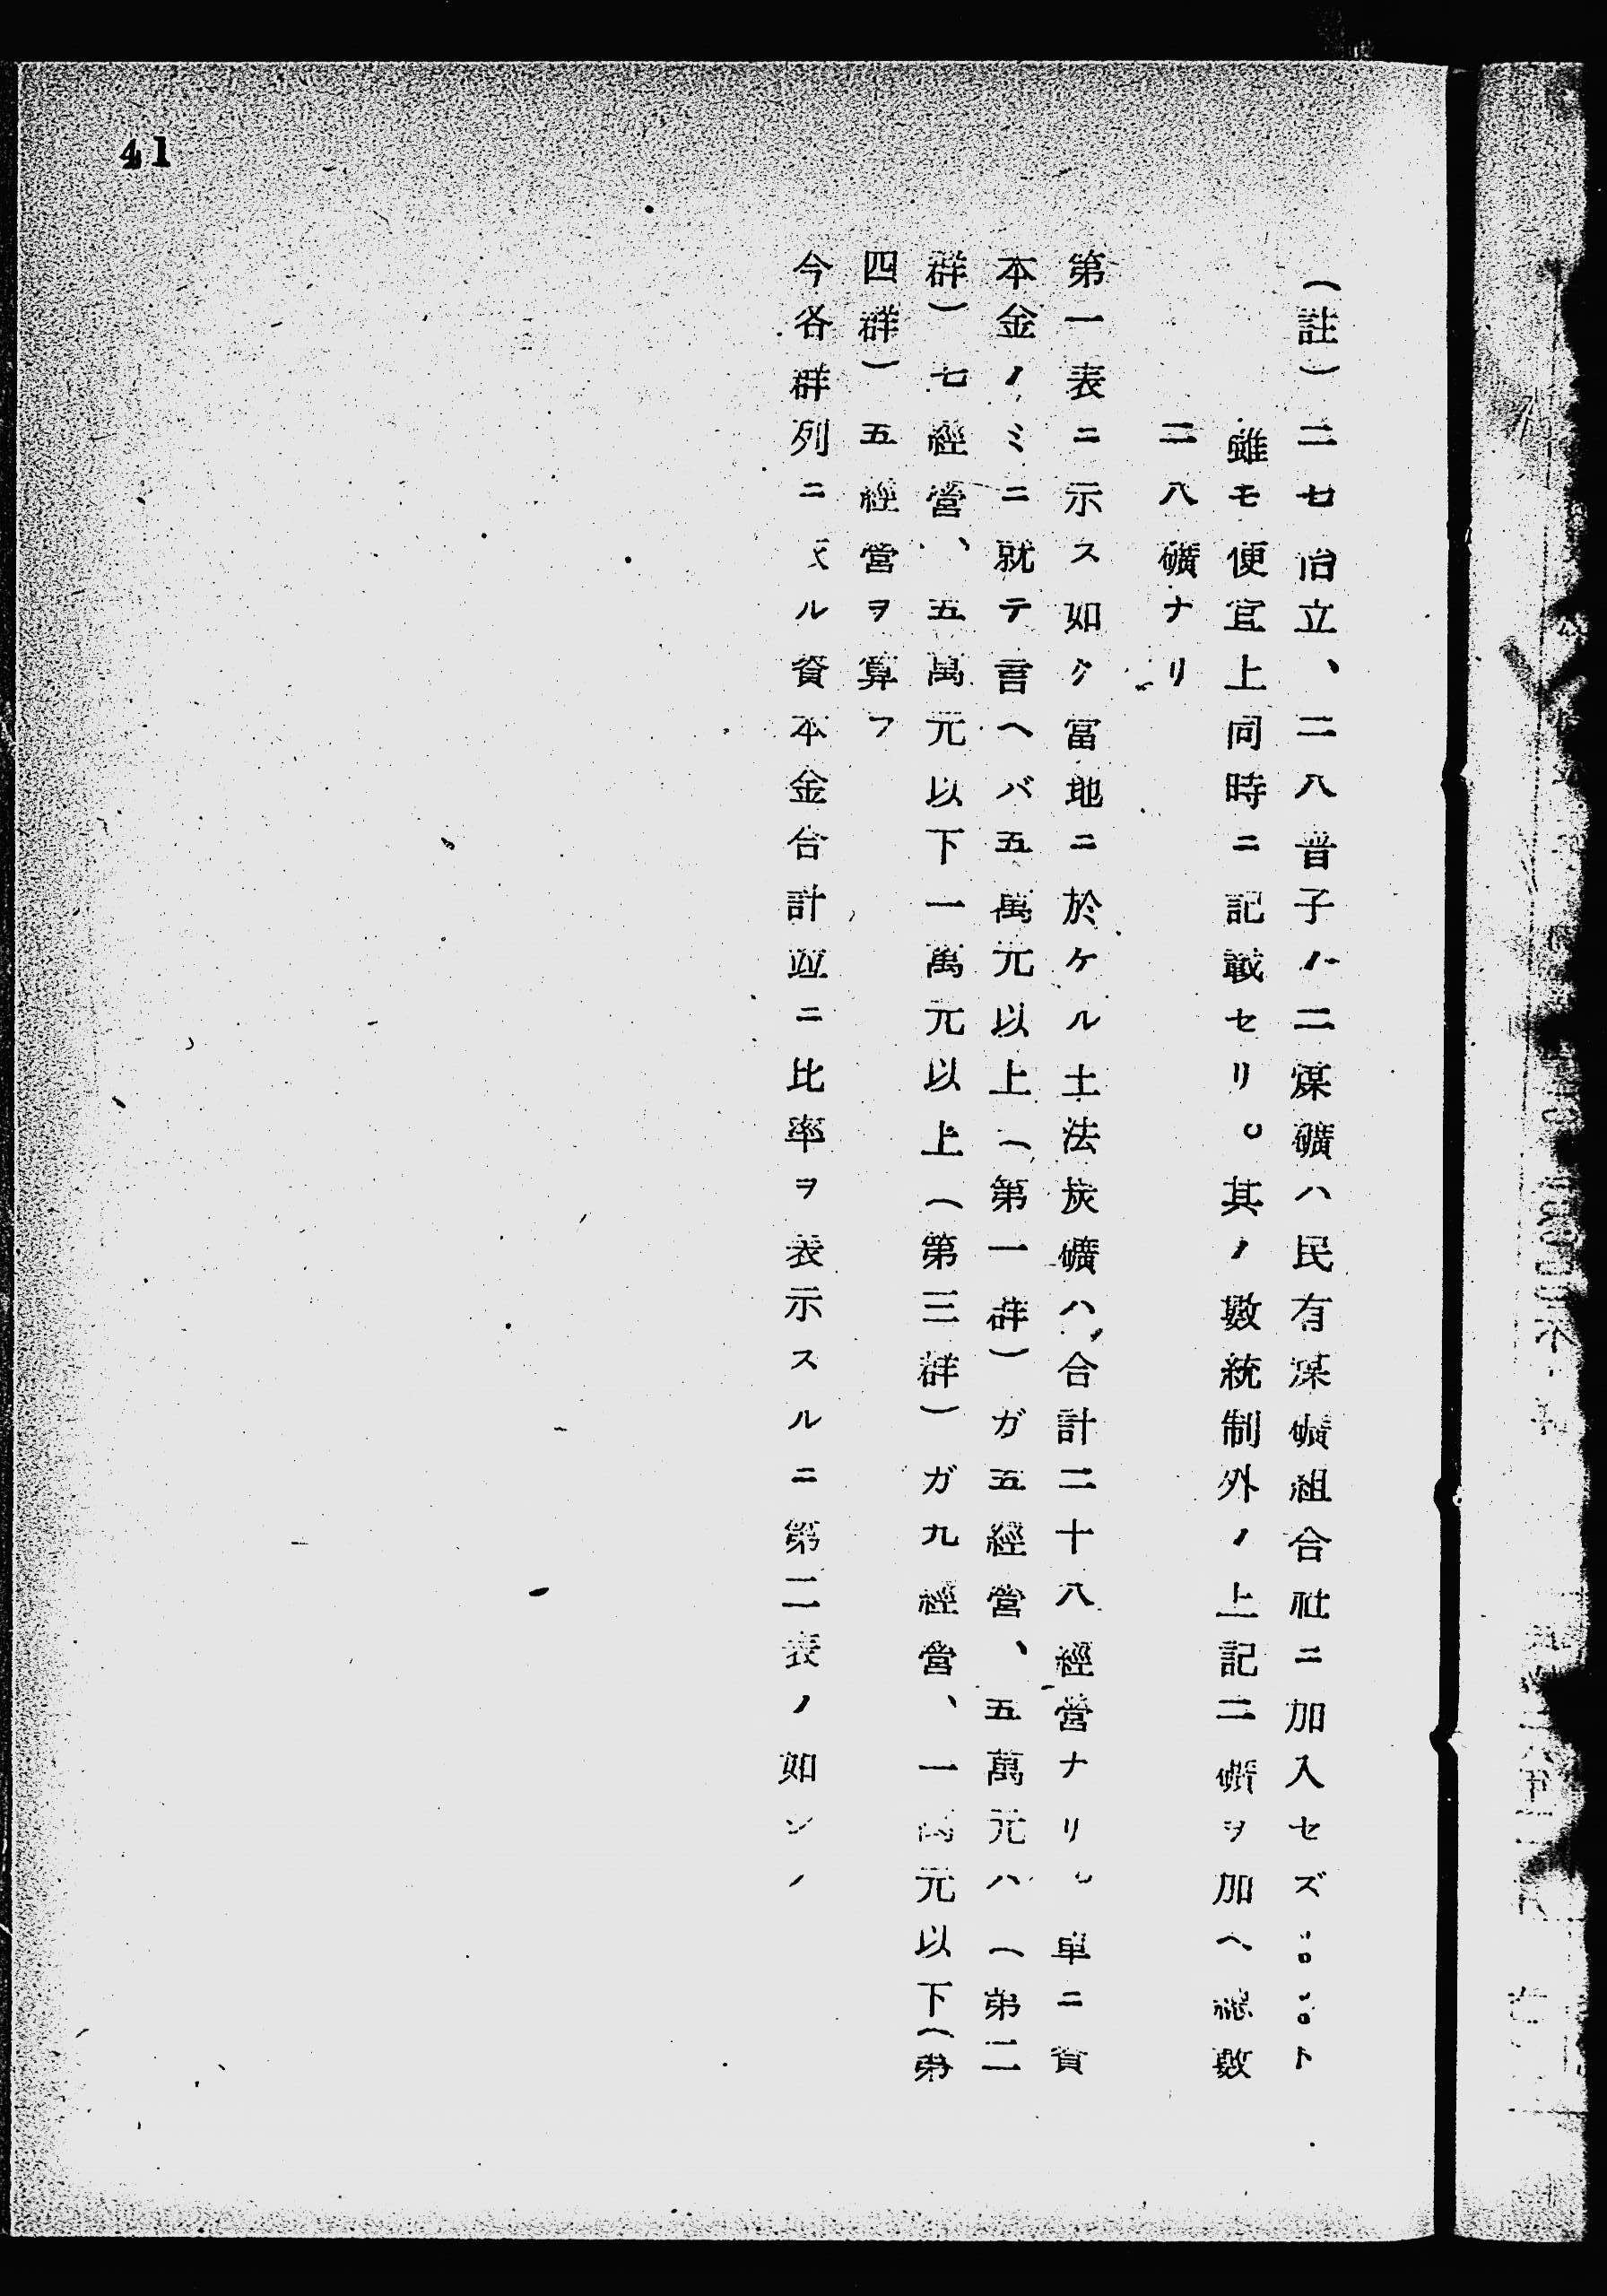 41
(註)二七冶立、二八晋子ノ二煤礦ハ民有煤礦組合社ニ加入セズ
雖モ便宜上同時ニ記載セリ。其ノ數統制外ノ上記二礦ヲ加ヘ總數
二八礦ナリ
第一表ニ示ス如ク當地ニ於ケル土法炭礦ハ合計二十八經營ナリ。單ニ資
本金ノミニ就テ言ヘバ五萬元以上(第一群)ガ五經營、五萬元ハ(第二
群)七經營、五萬元以下一萬元以上(第三群)ガ九經營、一萬元以下(第
四群)五經營ヲ算フ
今各群列ニ ル資本金合計竝ニ比率ヲ表示スルニ第二表ノ如シ